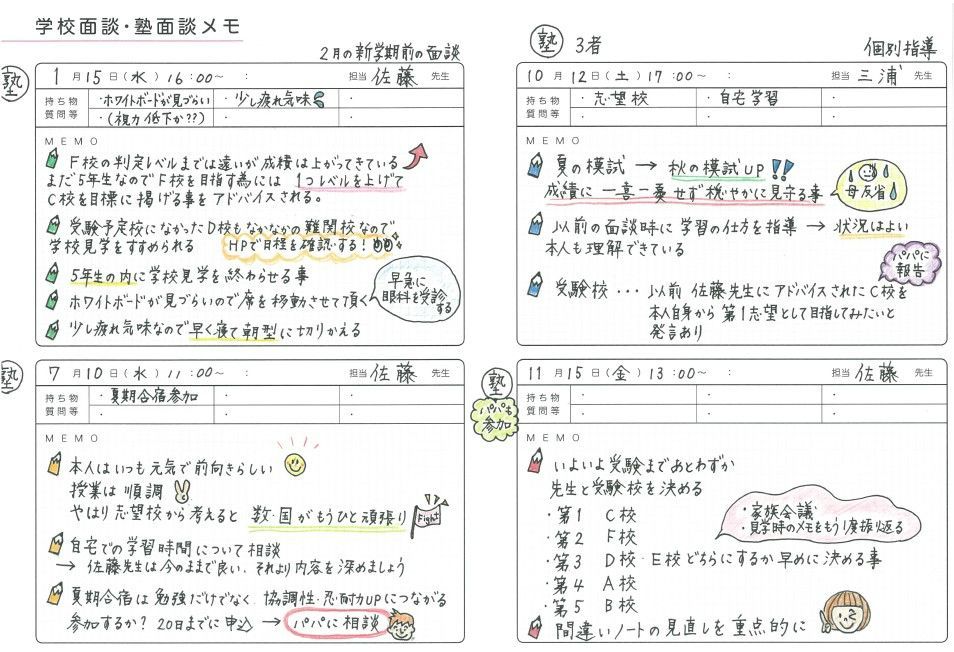 学校面談・塾面談メモ
2月の新学期前の面談
塾
1月15日(水) 16:00~ :
担当 佐藤 先生
持ち物
質問等
・ホワイトボードが見づらい
・(視力低下か??)
・少し疲れ気味
・
・
・
MEMO
F校の判定レベルまでは遠いが成績は上がってきている
まだ5年生なのでF校を目指す為には 1つレベルを上げて
C校を目標に掲げる事をアドバイスされる。
受験予定校になったD校もなかなかの難関校なので
学校見学をすすめられる HPで日程を確認する!
5年生の内に学校見学を終わらせる事
ホワイトボードが見づらいので席を移動させて頂く
早急に
眼科を受診
する
少し疲れ気味なので早く寝て朝型に切りかえる
塾
7月10日(水) 11:00~ :
担当 佐藤 先生
持ち物
質問等
・夏期合宿参加
・
・
・
・
・
MEMO
本人はいつも元気で前向きらしい
授業は順調
やはり志望校から考えると 数・国がもうひと頑張り
Fight
自宅での学習時間について相談
→ 佐藤先生は今のままで良い、それより内容を深めましょう
夏期合宿は勉強だけでなく、協調性・忍耐力UPにつながる
参加するか? 20日までに申込 → パパに相談
塾 3者
個別指導
10月12日(土) 17:00~ :
担当 三浦 先生
持ち物
質問等
・志望校
・自宅学習
・
・
・
・
MEMO
夏の模試 → 秋の模試UP!!
成績に一喜一憂せず穏やかに見守る事
母反省
以前の面談時に学習の仕方を指導 → 状況はよい
本人も理解できている
パパに
報告
受験校・・・以前 佐藤先生にアドバイスされたC校を
本人自身から第1志望として目指してみたいと
発言あり
塾
パパも
参加
11月15日(金) 13:00~ :
担当 佐藤 先生
持ち物
質問等
・
・
・
・
・
・
MEMO
いよいよ受験まであとわずか
先生と受験校を決める
・第1 C校
・第2 F校
・第3 D校・E校どちらにするか早めに決める事
・第4 A校
・第5 B校
・家族会議
・見学時のメモをもう1度振り返る
間違いノートの見直しを重点的に